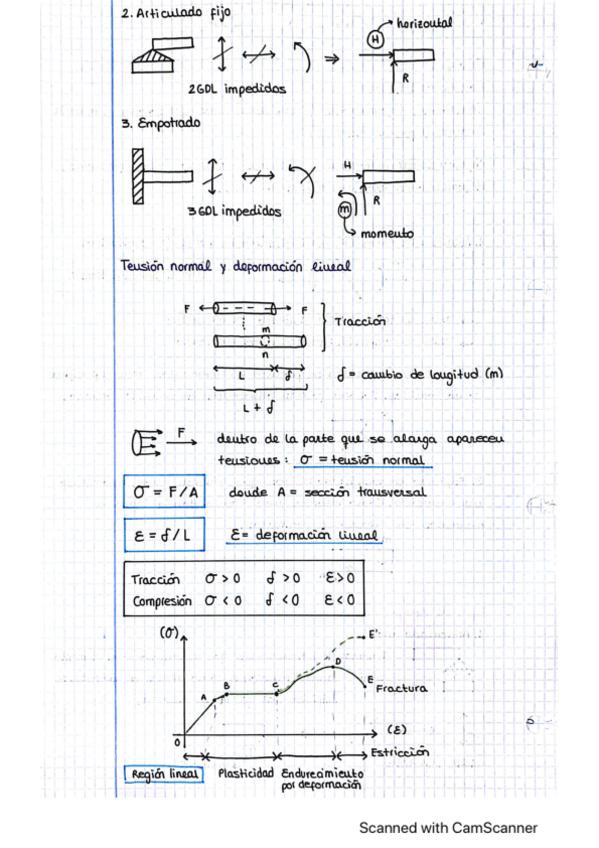 2. Articulado fijo
horizontal
H
R
2 GDL impedidos
3. Empotrado
H
R
m
3 GDL impedidos
momento
Tensión normal y deformación lineal
F F
Tracción
m
n
L δ
δ = cambio de longitud (m)
L + δ
F
dentro de la parte que se alarga aparecen
tensiones: σ = tensión normal
σ = F/A donde A = sección transversal
ε = δ/L ε = deformación lineal
Tracción σ > 0 δ > 0 ε > 0
Compresión σ < 0 δ < 0 ε < 0
(σ)
E'
D
A B C E
Fractura
0 (ε)
Estricción
Región lineal Plasticidad Endurecimiento
por deformación
Scanned with CamScanner